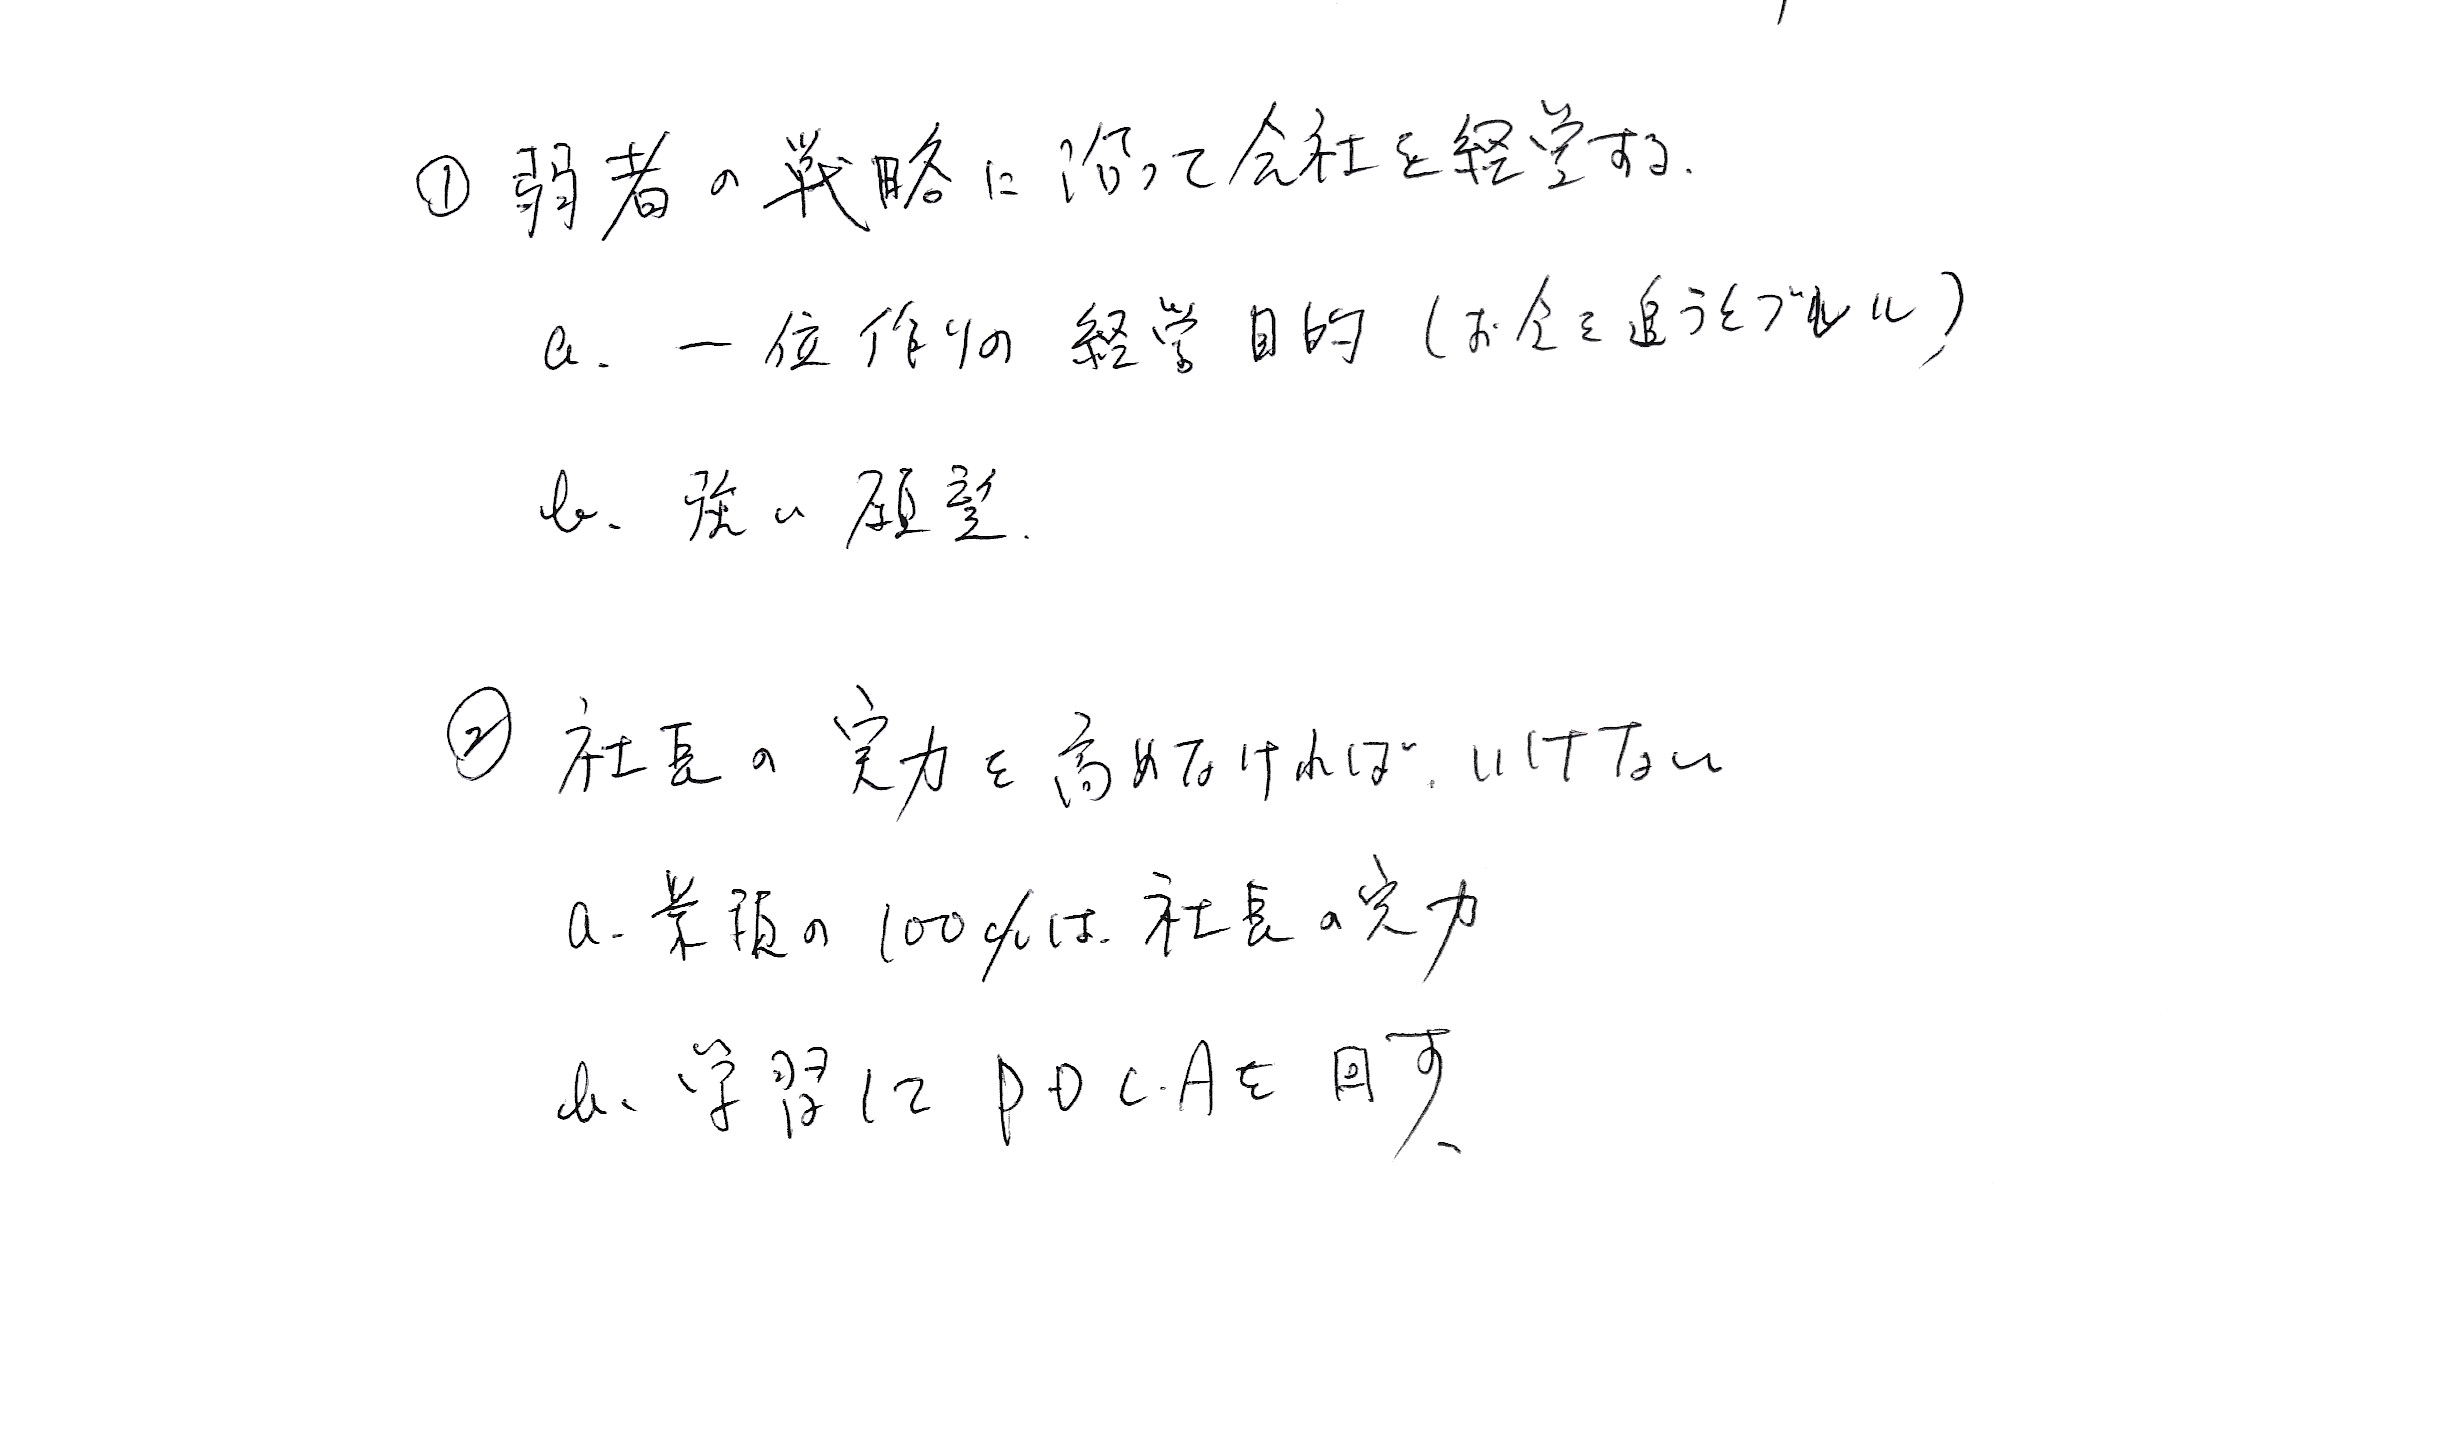 ① 弱者の戦略に沿って会社を経営する.
a. 一位作りの経営目的 (お金を追うとブレル)
b. 強い願望.
② 社長の実力を高めなければ. いけない
a. 業績の100%は. 社長の実力
b、学習して PDC.Aを回す、